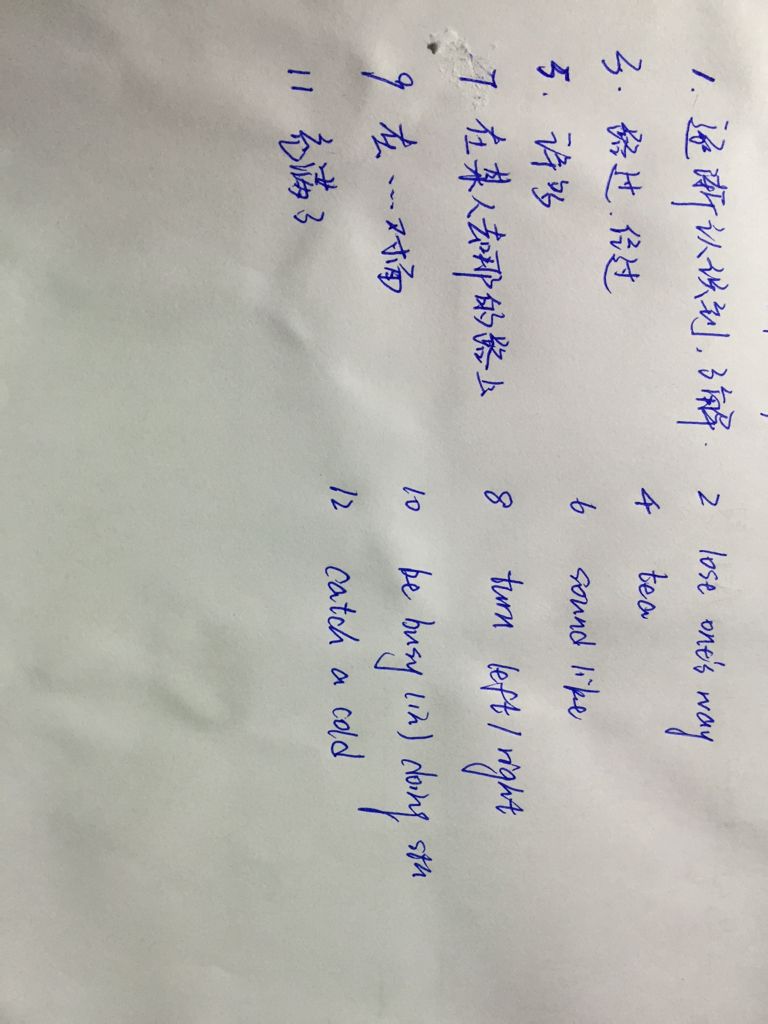 1. 逐渐认识到,了解. 2 lose one's way
3. 路过.经过 4 tea
5. 许多 6 sound like
7 在某人去那的路上 8 turn left / right
9 在...对面 10 be busy (in) doing sth
11 充满了 12 catch a cold